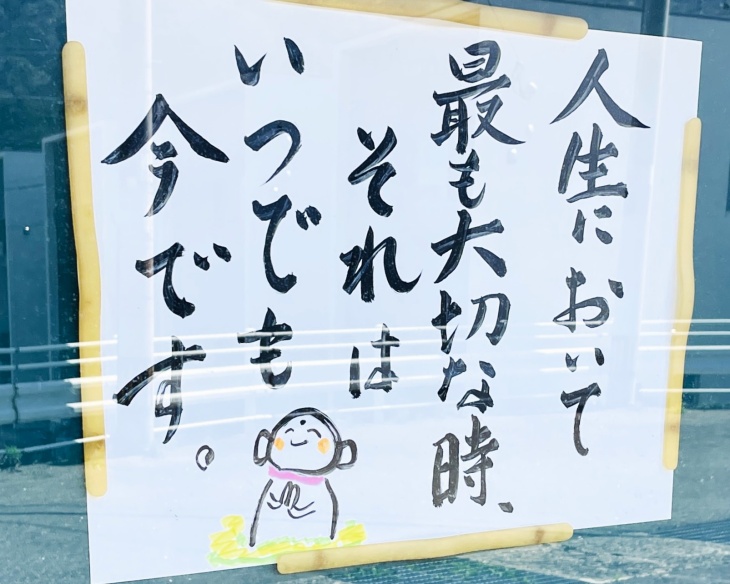 人生において
最も大切な時、
それは
いつでも
今です。